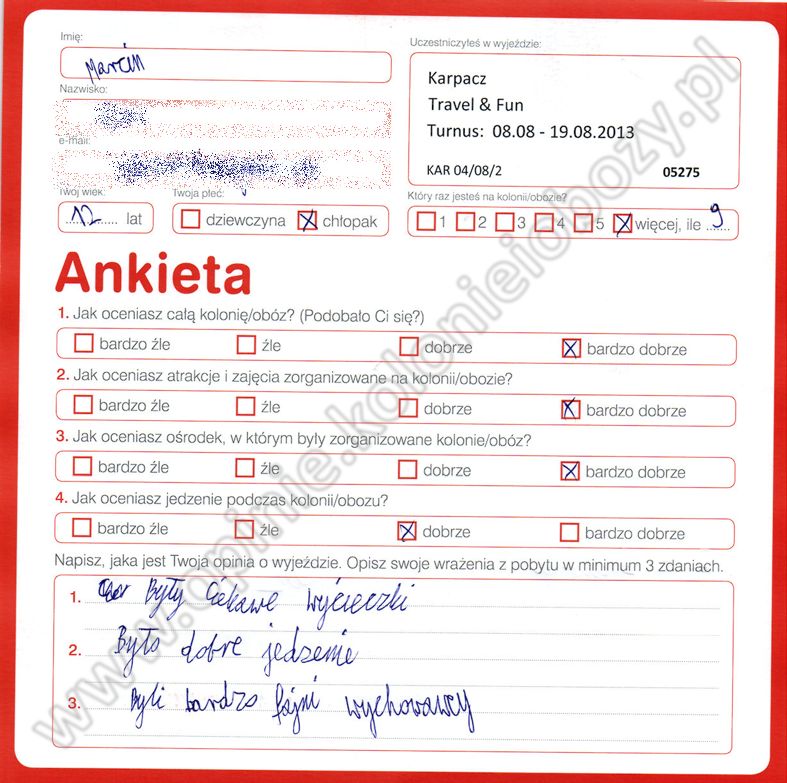 Imię:
Marcin
Nazwisko:
e-mail:
Twój wiek:
12 lat
Twoja płeć:
dziewczyna chłopak
Uczestniczyłeś w wyjeździe:
Karpacz
Travel & Fun
Turnus: 08.08 - 19.08.2013
KAR 04/08/2 05275
Który raz jesteś na kolonii/obozie?
1 2 3 4 5 więcej, ile 9
Ankieta
1. Jak oceniasz całą kolonię/obóz? (Podobało Ci się?)
bardzo źle źle dobrze bardzo dobrze
2. Jak oceniasz atrakcje i zajęcia zorganizowane na kolonii/obozie?
bardzo źle źle dobrze bardzo dobrze
3. Jak oceniasz ośrodek, w którym były zorganizowane kolonie/obóz?
bardzo źle źle dobrze bardzo dobrze
4. Jak oceniasz jedzenie podczas kolonii/obozu?
bardzo źle źle dobrze bardzo dobrze
Napisz, jaka jest Twoja opinia o wyjeździe. Opisz swoje wrażenia z pobytu w minimum 3 zdaniach.
1. Były ciekawe wycieczki
2. Było dobre jedzenie
3. Byli bardzo fajni wychowawcy
www.opinie.kolonieiobozy.pl